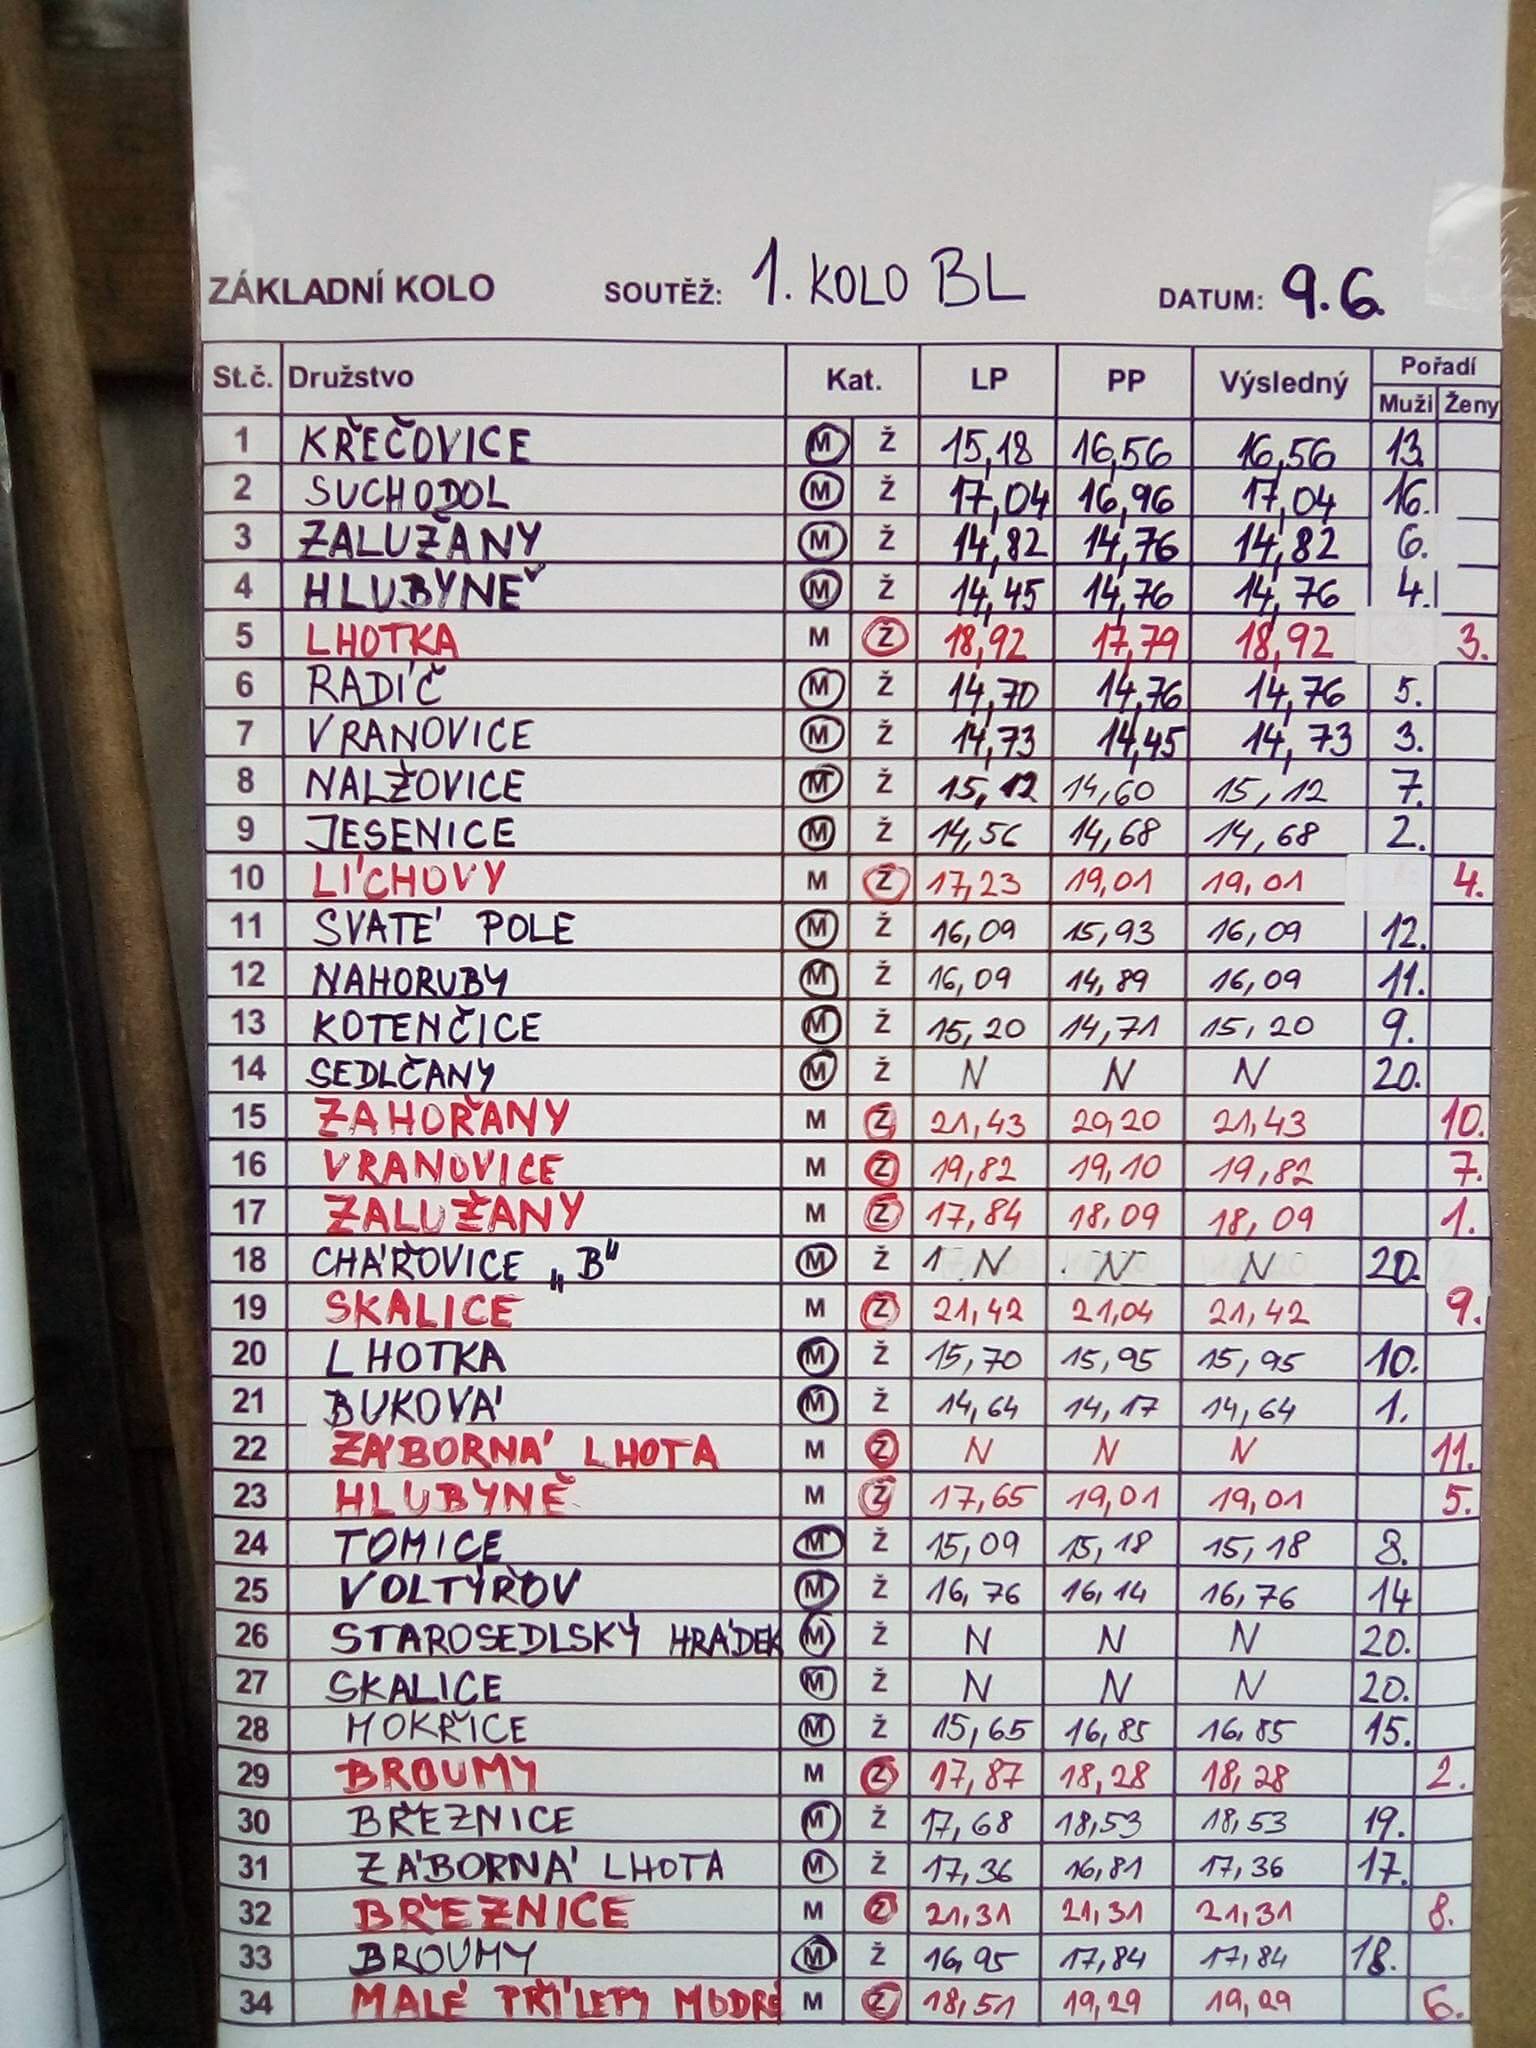 ZÁKLADNÍ KOLO SOUTĚŽ: 1. KOLO BL DATUM: 9.6.
St.č. Družstvo Kat. LP PP Výsledný Pořadí
Muži Ženy
1 KŘEČOVICE M Ž 15,18 16,56 16,56 13.
2 SUCHODOL M Ž 17,04 16,96 17,04 16.
3 ZALUŽANY M Ž 14,82 14,76 14,82 6.
4 HLUBYNĚ M Ž 14,45 14,76 14,76 4.
5 LHOTKA M Ž 18,92 17,79 18,92 3.
6 RADÍČ M Ž 14,70 14,76 14,76 5.
7 VRANOVICE M Ž 14,73 14,45 14,73 3.
8 NALŽOVICE M Ž 15,12 14,60 15,12 7.
9 JESENICE M Ž 14,56 14,68 14,68 2.
10 LÍCHOVY M Ž 17,23 19,01 19,01 4.
11 SVATÉ POLE M Ž 16,09 15,93 16,09 12.
12 NAHORUBY M Ž 16,09 14,89 16,09 11.
13 KOTENČICE M Ž 15,20 14,71 15,20 9.
14 SEDLČANY M Ž N N N 20.
15 ZAHOŘANY M Ž 21,43 20,20 21,43 10.
16 VRANOVICE M Ž 19,82 19,10 19,82 7.
17 ZALUŽANY M Ž 17,84 18,09 18,09 1.
18 CHÁŘOVICE „B" M Ž N N N 20.
19 SKALICE M Ž 21,42 21,04 21,42 9.
20 LHOTKA M Ž 15,70 15,95 15,95 10.
21 BUKOVÁ M Ž 14,64 14,17 14,64 1.
22 ZÁBORNÁ LHOTA M Ž N N N 11.
23 HLUBYNĚ M Ž 17,65 19,01 19,01 5.
24 TOMICE M Ž 15,09 15,18 15,18 8.
25 VOLTÝŘOV M Ž 16,76 16,14 16,76 14
26 STAROSEDLSKÝ HRÁDEK M Ž N N N 20.
27 SKALICE M Ž N N N 20.
28 MOKŘICE M Ž 15,65 16,85 16,85 15.
29 BROUMY M Ž 17,87 18,28 18,28 2.
30 BŘEZNICE M Ž 17,68 18,53 18,53 19.
31 ZÁBORNÁ LHOTA M Ž 17,36 16,81 17,36 17.
32 BŘEZNICE M Ž 21,31 21,31 21,31 8.
33 BROUMY M Ž 16,95 17,84 17,84 18.
34 MALÉ PŘÍLEPY MODRÉ M Ž 18,51 19,29 19,29 6.